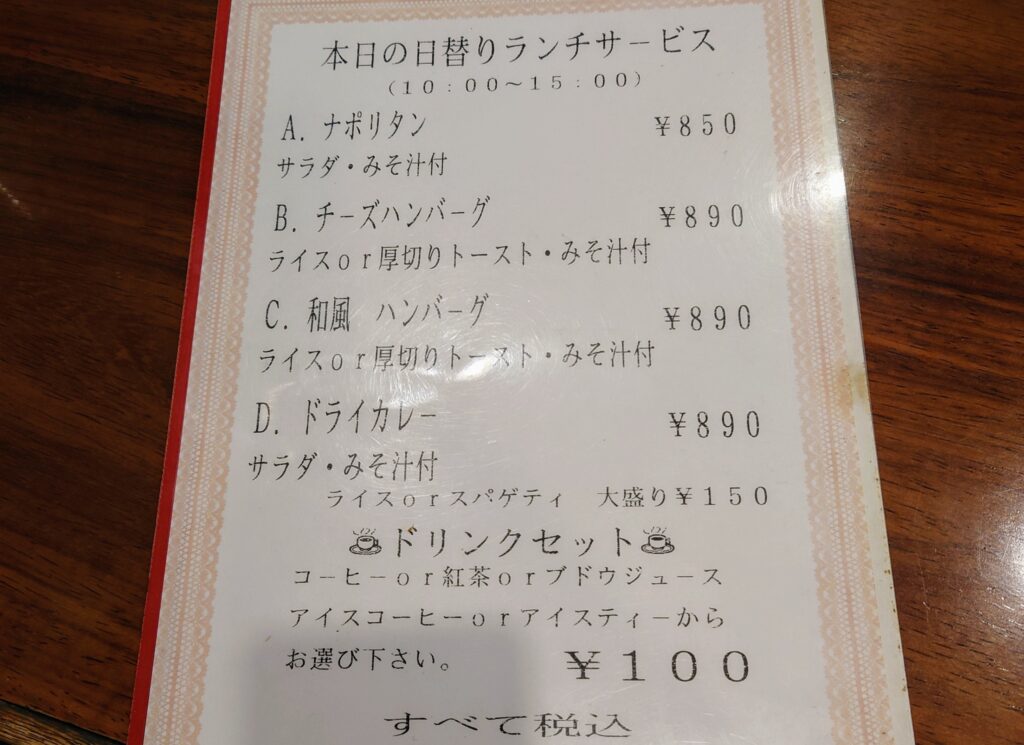 本日の日替りランチサービス
（１０：００～１５：００）
A. ナポリタン ￥８５０
サラダ・みそ汁付
B. チーズハンバーグ ￥８９０
ライスｏｒ厚切りトースト・みそ汁付
C. 和風　ハンバーグ ￥８９０
ライスｏｒ厚切りトースト・みそ汁付
D. ドライカレー ￥８９０
サラダ・みそ汁付
ライスｏｒスパゲティ　大盛り￥１５０
☕ドリンクセット☕
コーヒーｏｒ紅茶ｏｒブドウジュース
アイスコーヒーｏｒアイスティーから
お選び下さい。 ￥１００
すべて税込